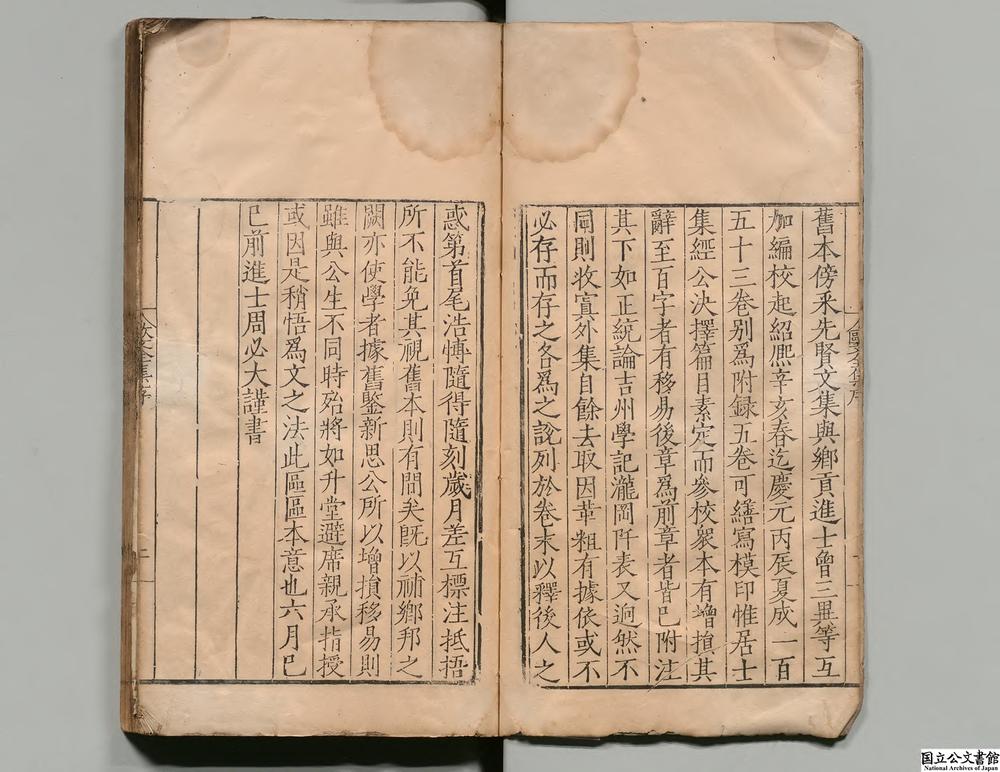 舊本傍采先賢文集與鄉貢進士曾三異等互
加編校起紹熈辛亥春迄慶元丙辰夏成一百
五十三卷别爲附録五卷可繕寫模印惟居士
集經公决擇篇目素定而參校衆本有增損其
辭至百字者有移易後章爲前章者皆已附注
其下如正統論吉州學記瀧岡阡表又逈然不
同則收寘外集自餘去取因革粗有據依或不
必存而存之各爲之説列於卷末以釋後人之
惑第首尾浩愽隨得隨刻歲月差互標注抵捂
所不能免其視舊本則有間矣旣以補鄉邦之
闕亦使學者據舊鑒新思公所以增損移易則
雖與公生不同時殆將如升堂避席親承指授
或因是稍悟爲文之法此區區本意也六月己
巳前進士周必大謹書
國立公文書館
National Archives of Japan